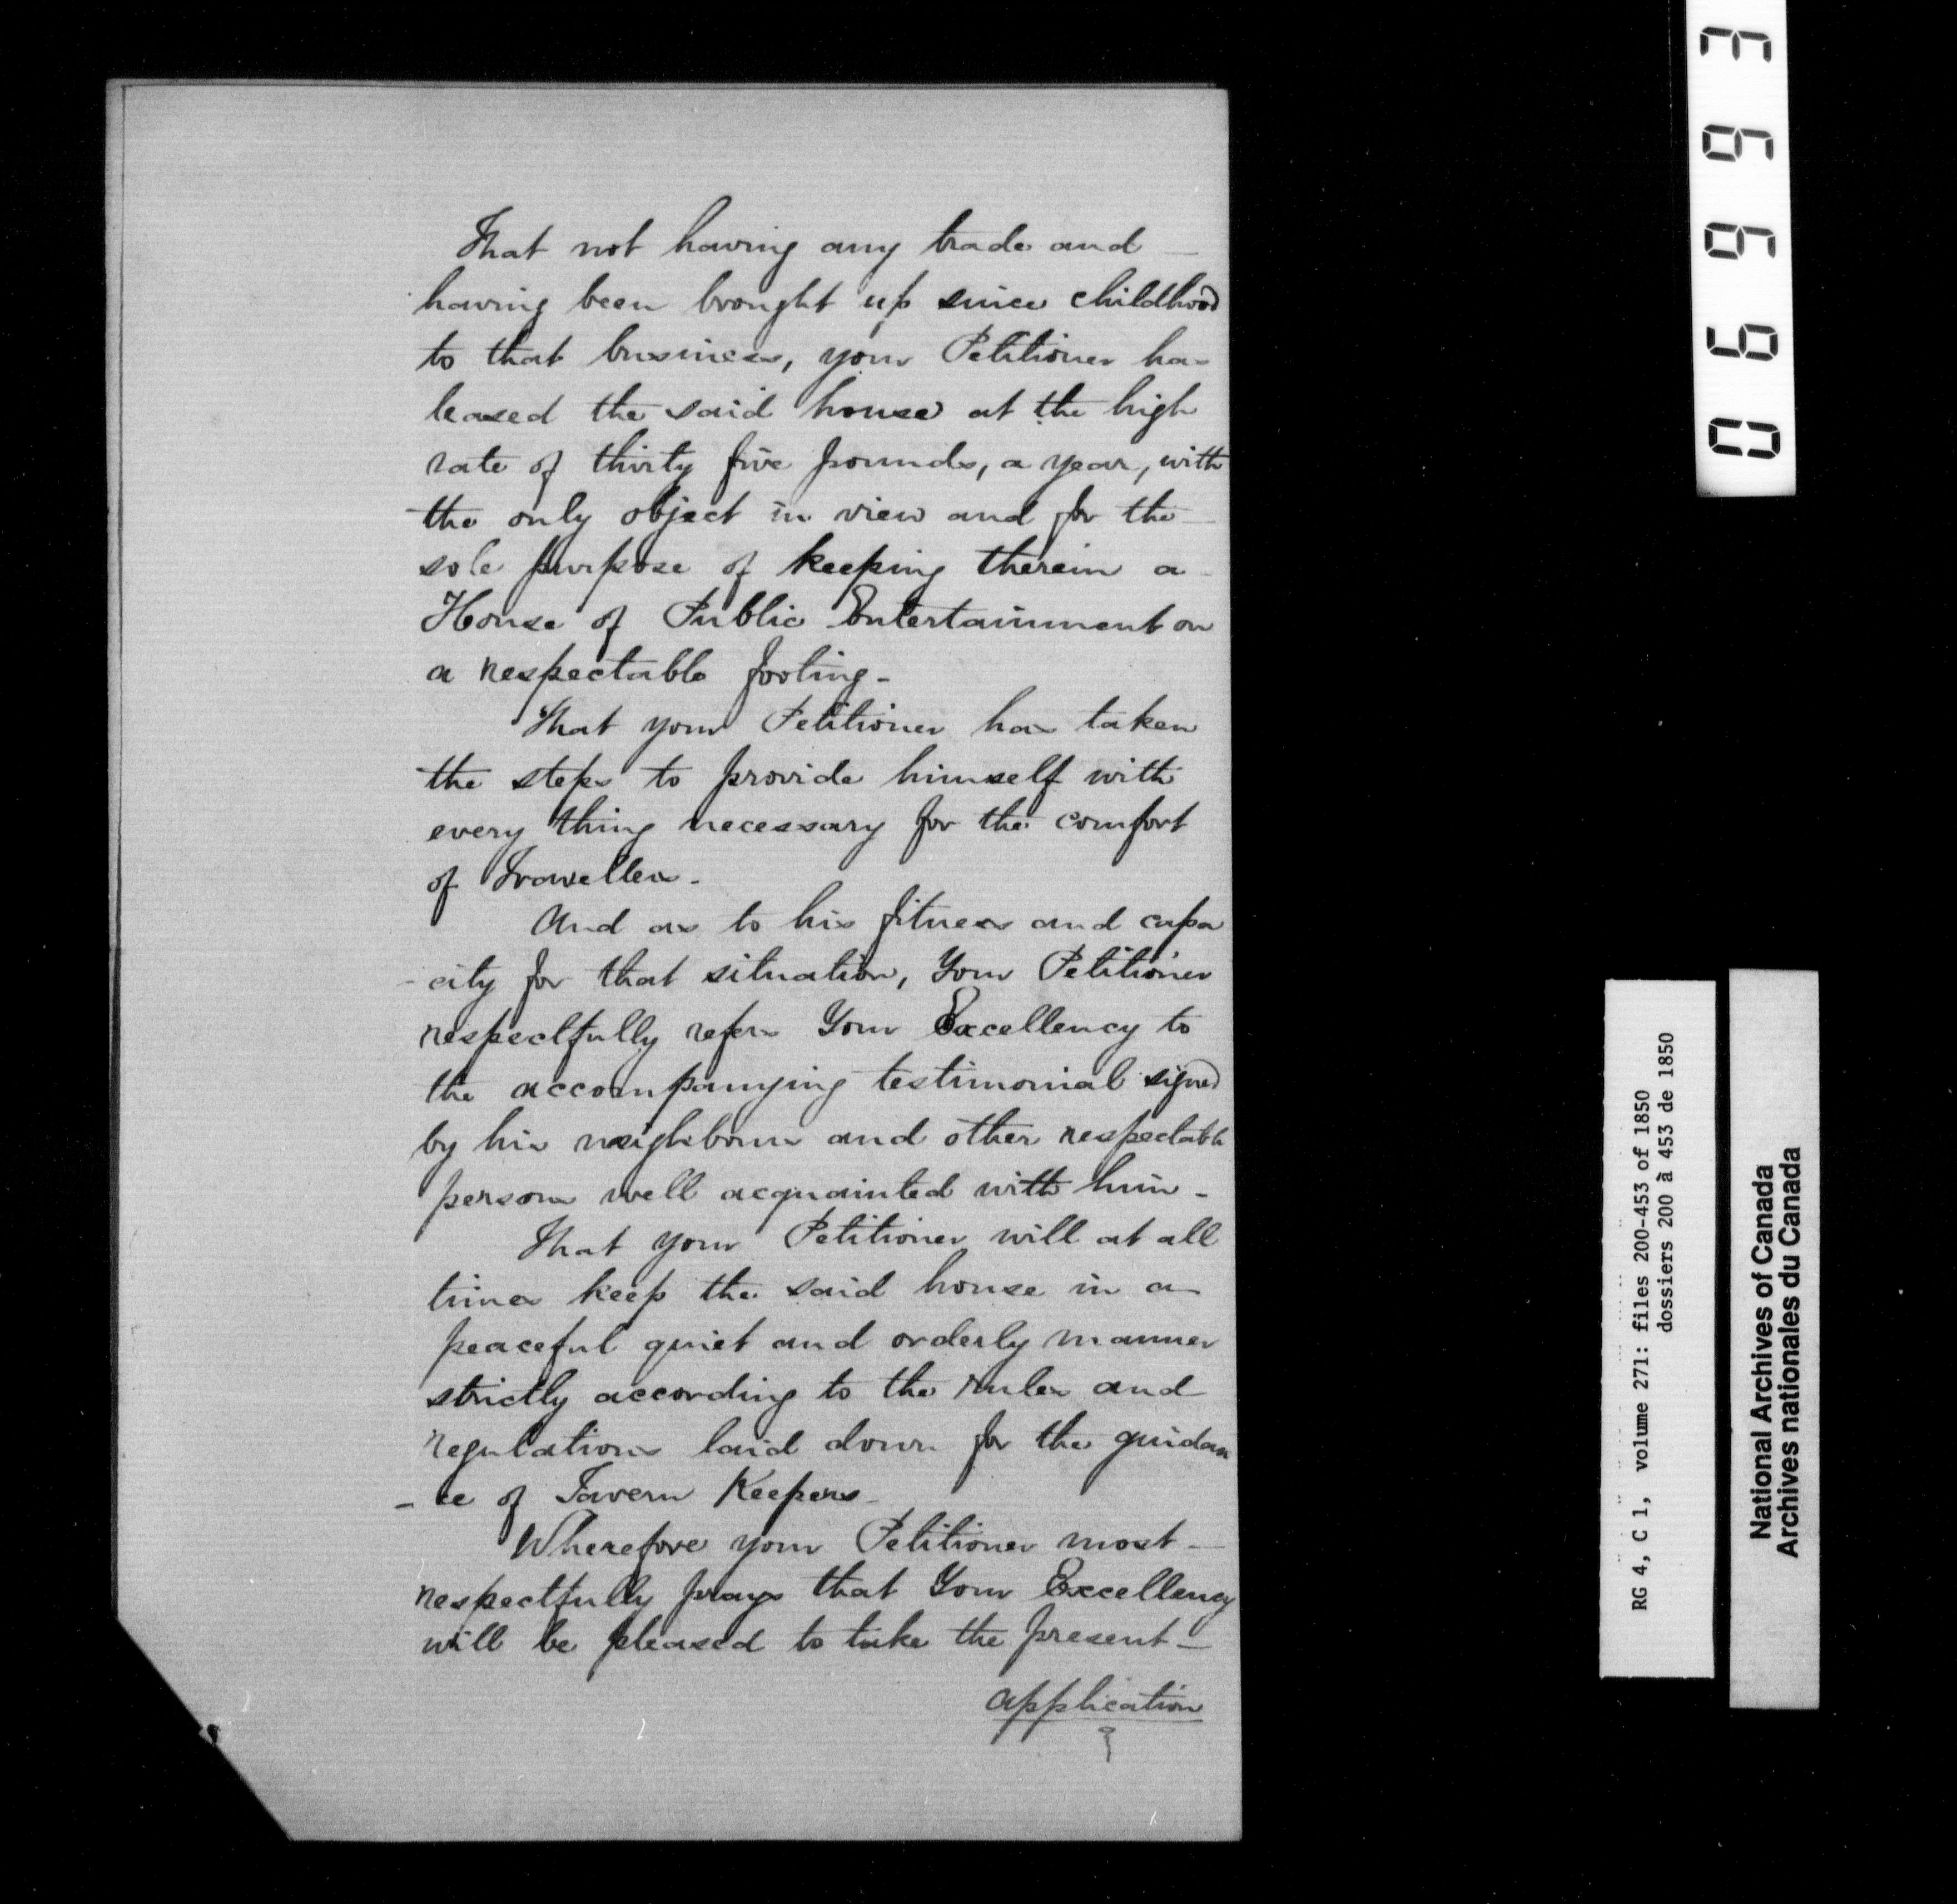 That not having any trade and —
having been brought up since childhood
to that business, your Petitioner has
leased the said house at the high
rate of thirty five pounds, a year, with
the only object in view and for the —
sole purpose of keeping therein a —
House of Public Entertainment on
a respectable footing -
That your Petitioner has taken
the steps to provide himself with
every thing necessary for the comfort
of Travellers -
And as to his fitness and capa
- city for that situation, Your Petitioner
respectfully refers Your Excellency to
the accompanying testimonial signed
by his neighbours and other respectable
persons well acquainted with him -
That your Petitioner will at all
times keep the said house in a
peaceful quiet and orderly manner
strictly according to the rules and
regulations laid down for the guidan
- ce of Tavern Keepers -
Wherefore your Petitioner most —
respectfully prays that Your Excellency
will be pleased to take the present —
application
06993
RG 4, C 1, volume 271: files 200-453 of 1850
dossiers 200 à 453 de 1850
National Archives of Canada
Archives nationales du Canada